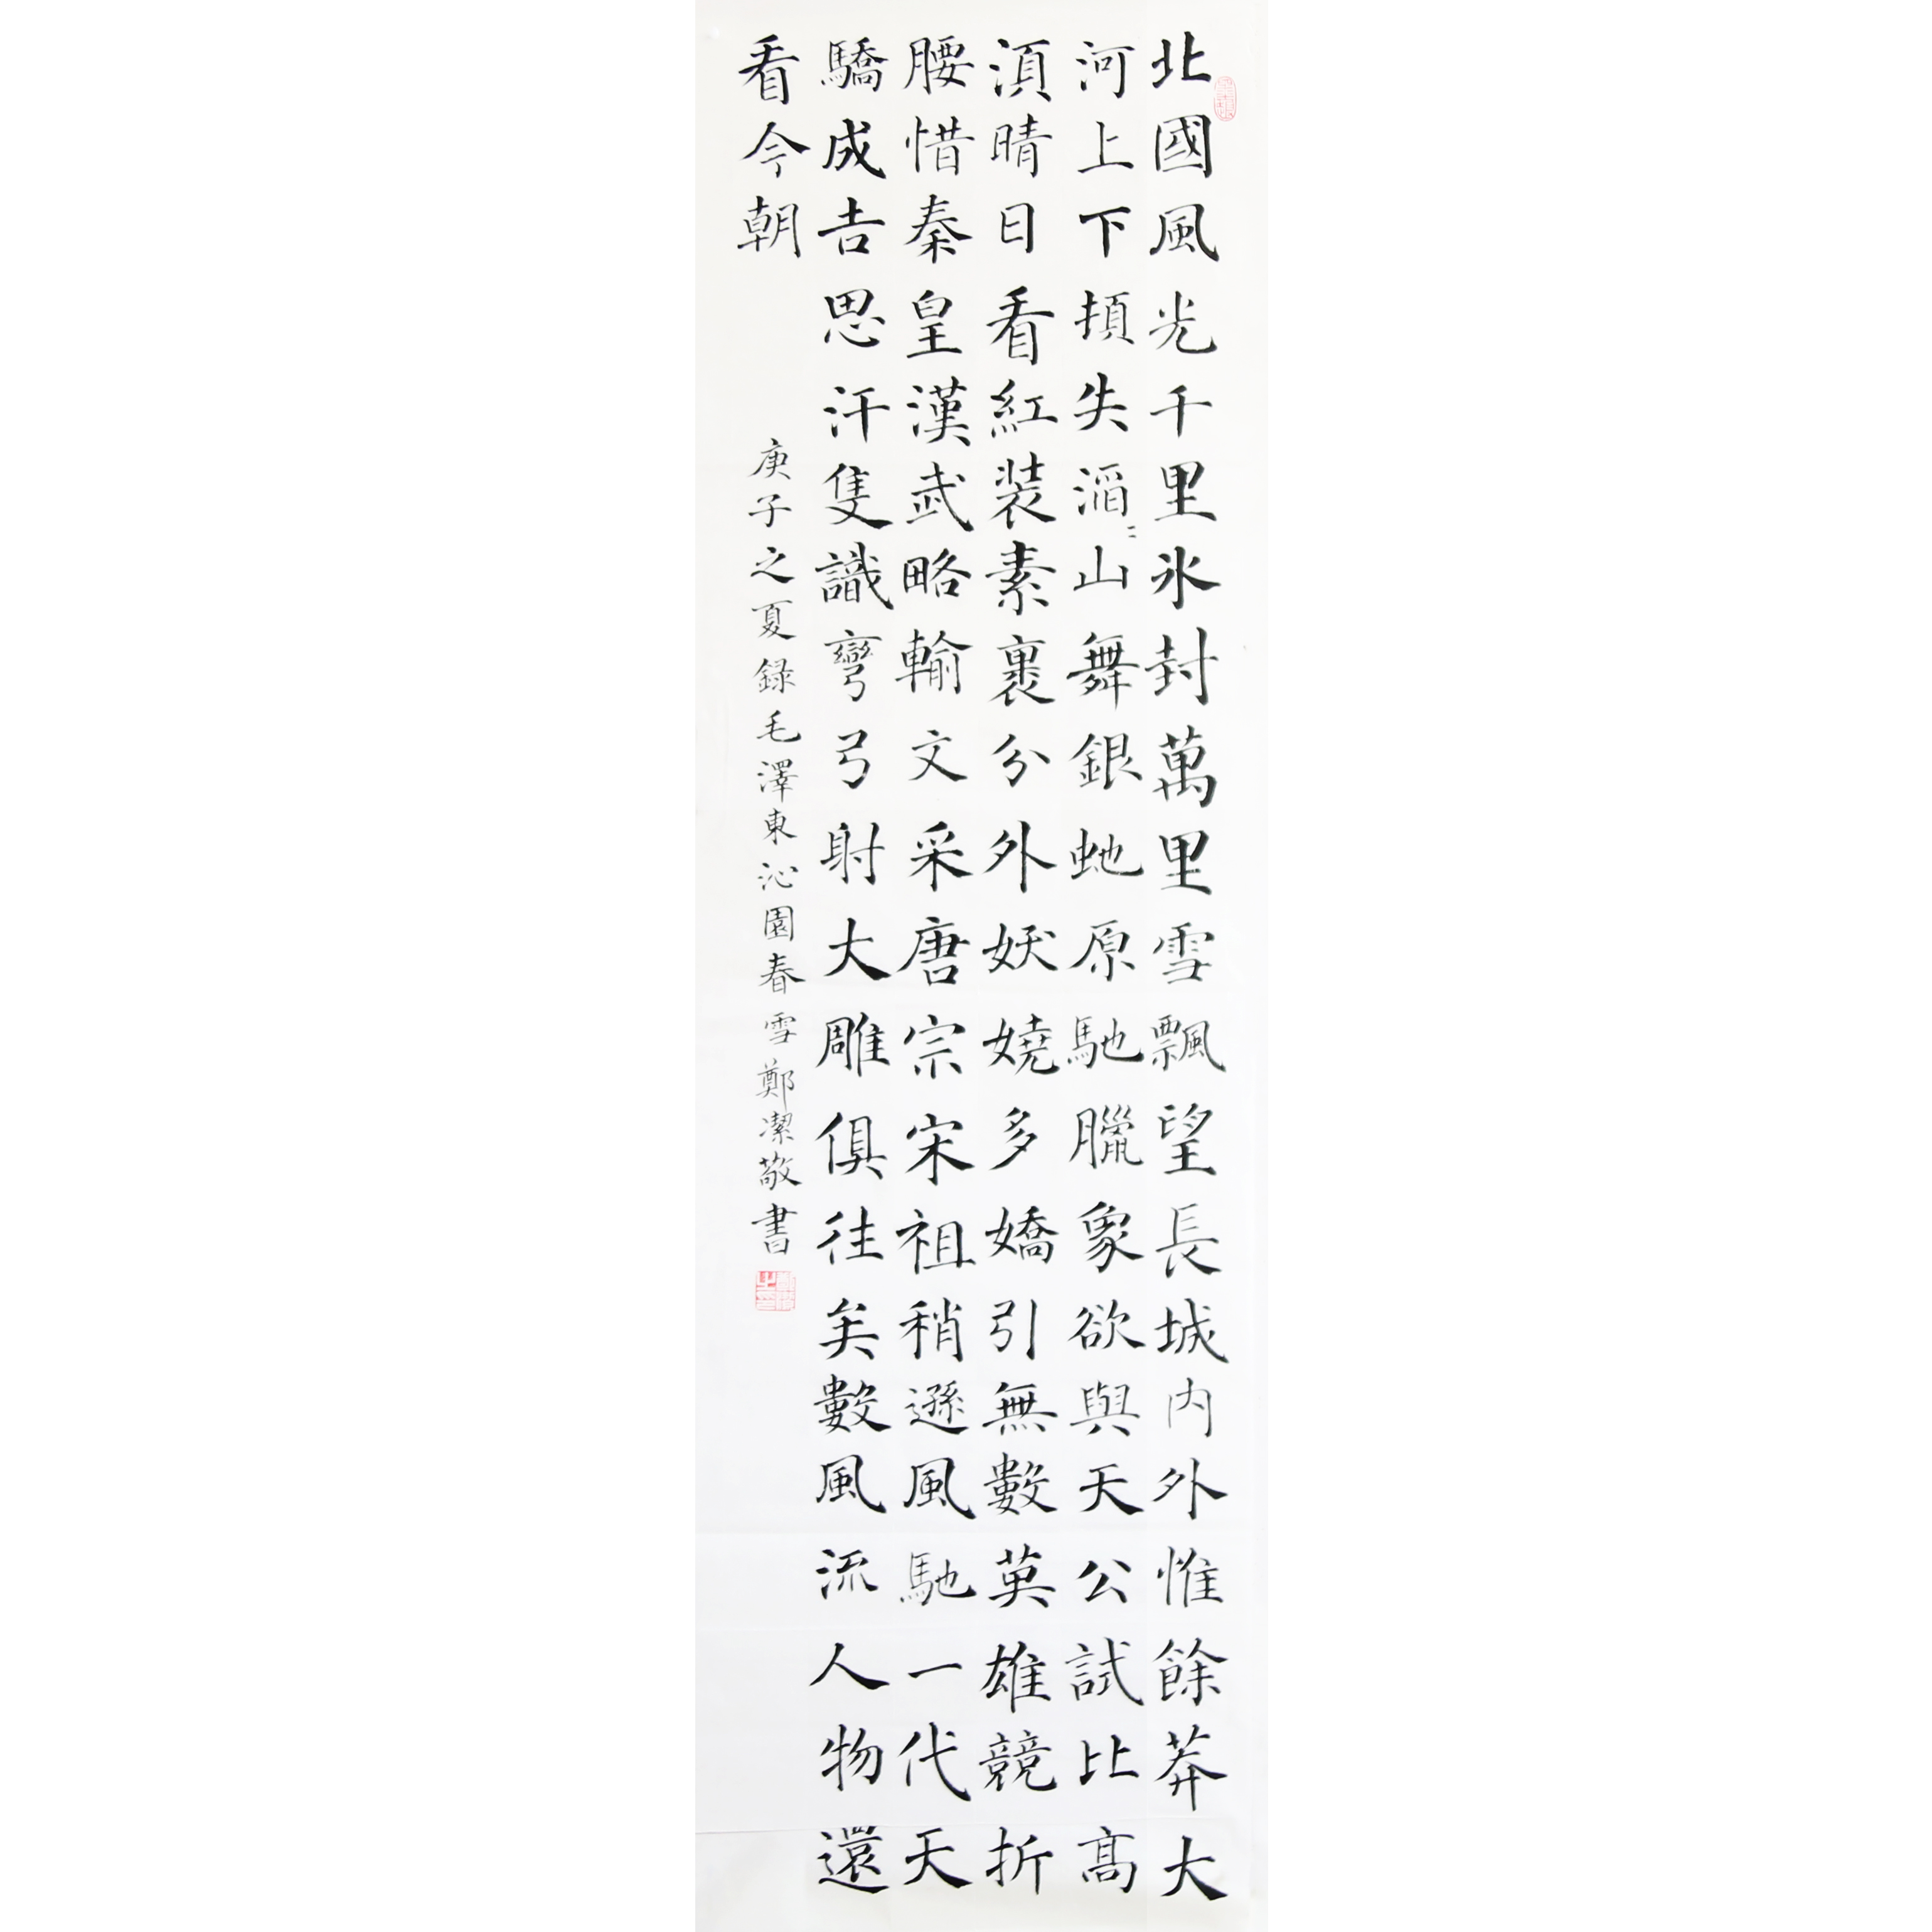 北國風光千里氷封萬里雪飄望長城内外惟餘莽大
河上下頓失滔〻山舞銀虵原馳臘象欲與天公試比髙
湏晴日看紅装素裹分外妖嬈多嬌引無數英雄競折
腰惜秦皇漢武略輸文采唐宗宋祖稍遜風馳一代天
驕成吉思汗隻識彎弓射大雕俱往矣數風流人物還
看今朝
庚子之夏録毛澤東沁園春雪鄭潔敬書